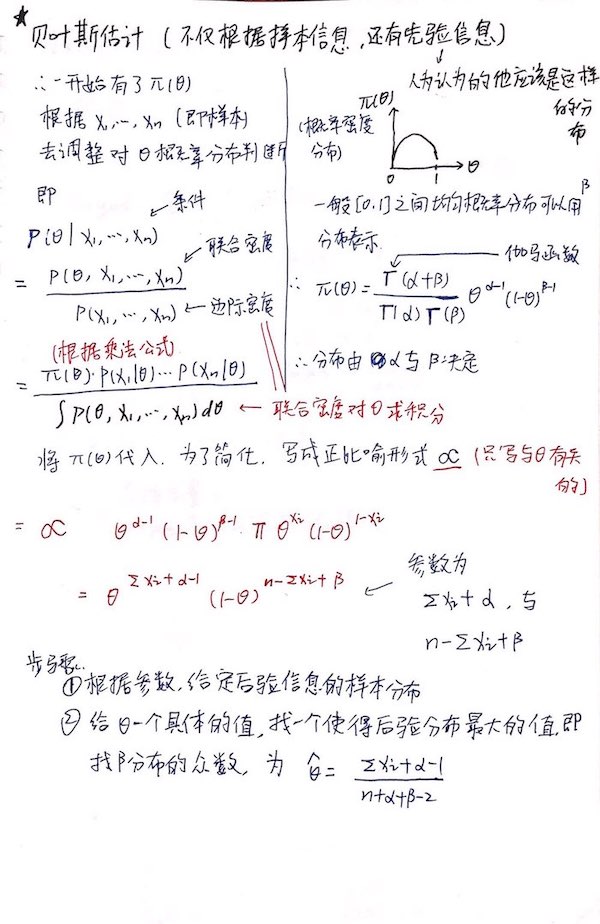 ★
贝叶斯估计 (不仅根据样本信息,还有先验信息)
∴一开始有了π(θ)
根据 x₁,…,xₙ (即样本)
去调整对θ概率分布判断
即
条件
P(θ|x₁,…,xₙ)
= P(θ, x₁,…,xₙ) / P(x₁,…,xₙ)
联合密度
边际密度
(根据乘法公式)
= π(θ)·P(x₁|θ)…P(xₙ|θ) / ∫P(θ, x₁,…,xₙ)dθ
← 联合密度对θ求积分
人为认为的他应该是这样
的分
布
π(θ)
(概率密度
分布)
θ
1
一般[0,1]之间均匀概率分布可以用β
分布表示
伽马函数
∴ π(θ)= Γ(α+β) / Γ(α)Γ(β) θ^(α-1) (1-θ)^(β-1)
∴分布由 α与β决定
将π(θ)代入.为了简化,写成正比喻形式 ∝ (只写与θ有关
的)
= ∝ θ^(α-1) (1-θ)^(β-1) · π θ^(xᵢ) (1-θ)^(1-xᵢ)
= θ^(Σxᵢ+α-1) (1-θ)^(n-Σxᵢ+β)
← 参数为
Σxᵢ+α,与
n-Σxᵢ+β
步骤:
①根据参数,给定后验信息的样本分布
②给θ一个具体的值,找一个使得后验分布最大的值,即
找β分布的众数,为 θ̂ = Σxᵢ+α-1 / n+α+β-2